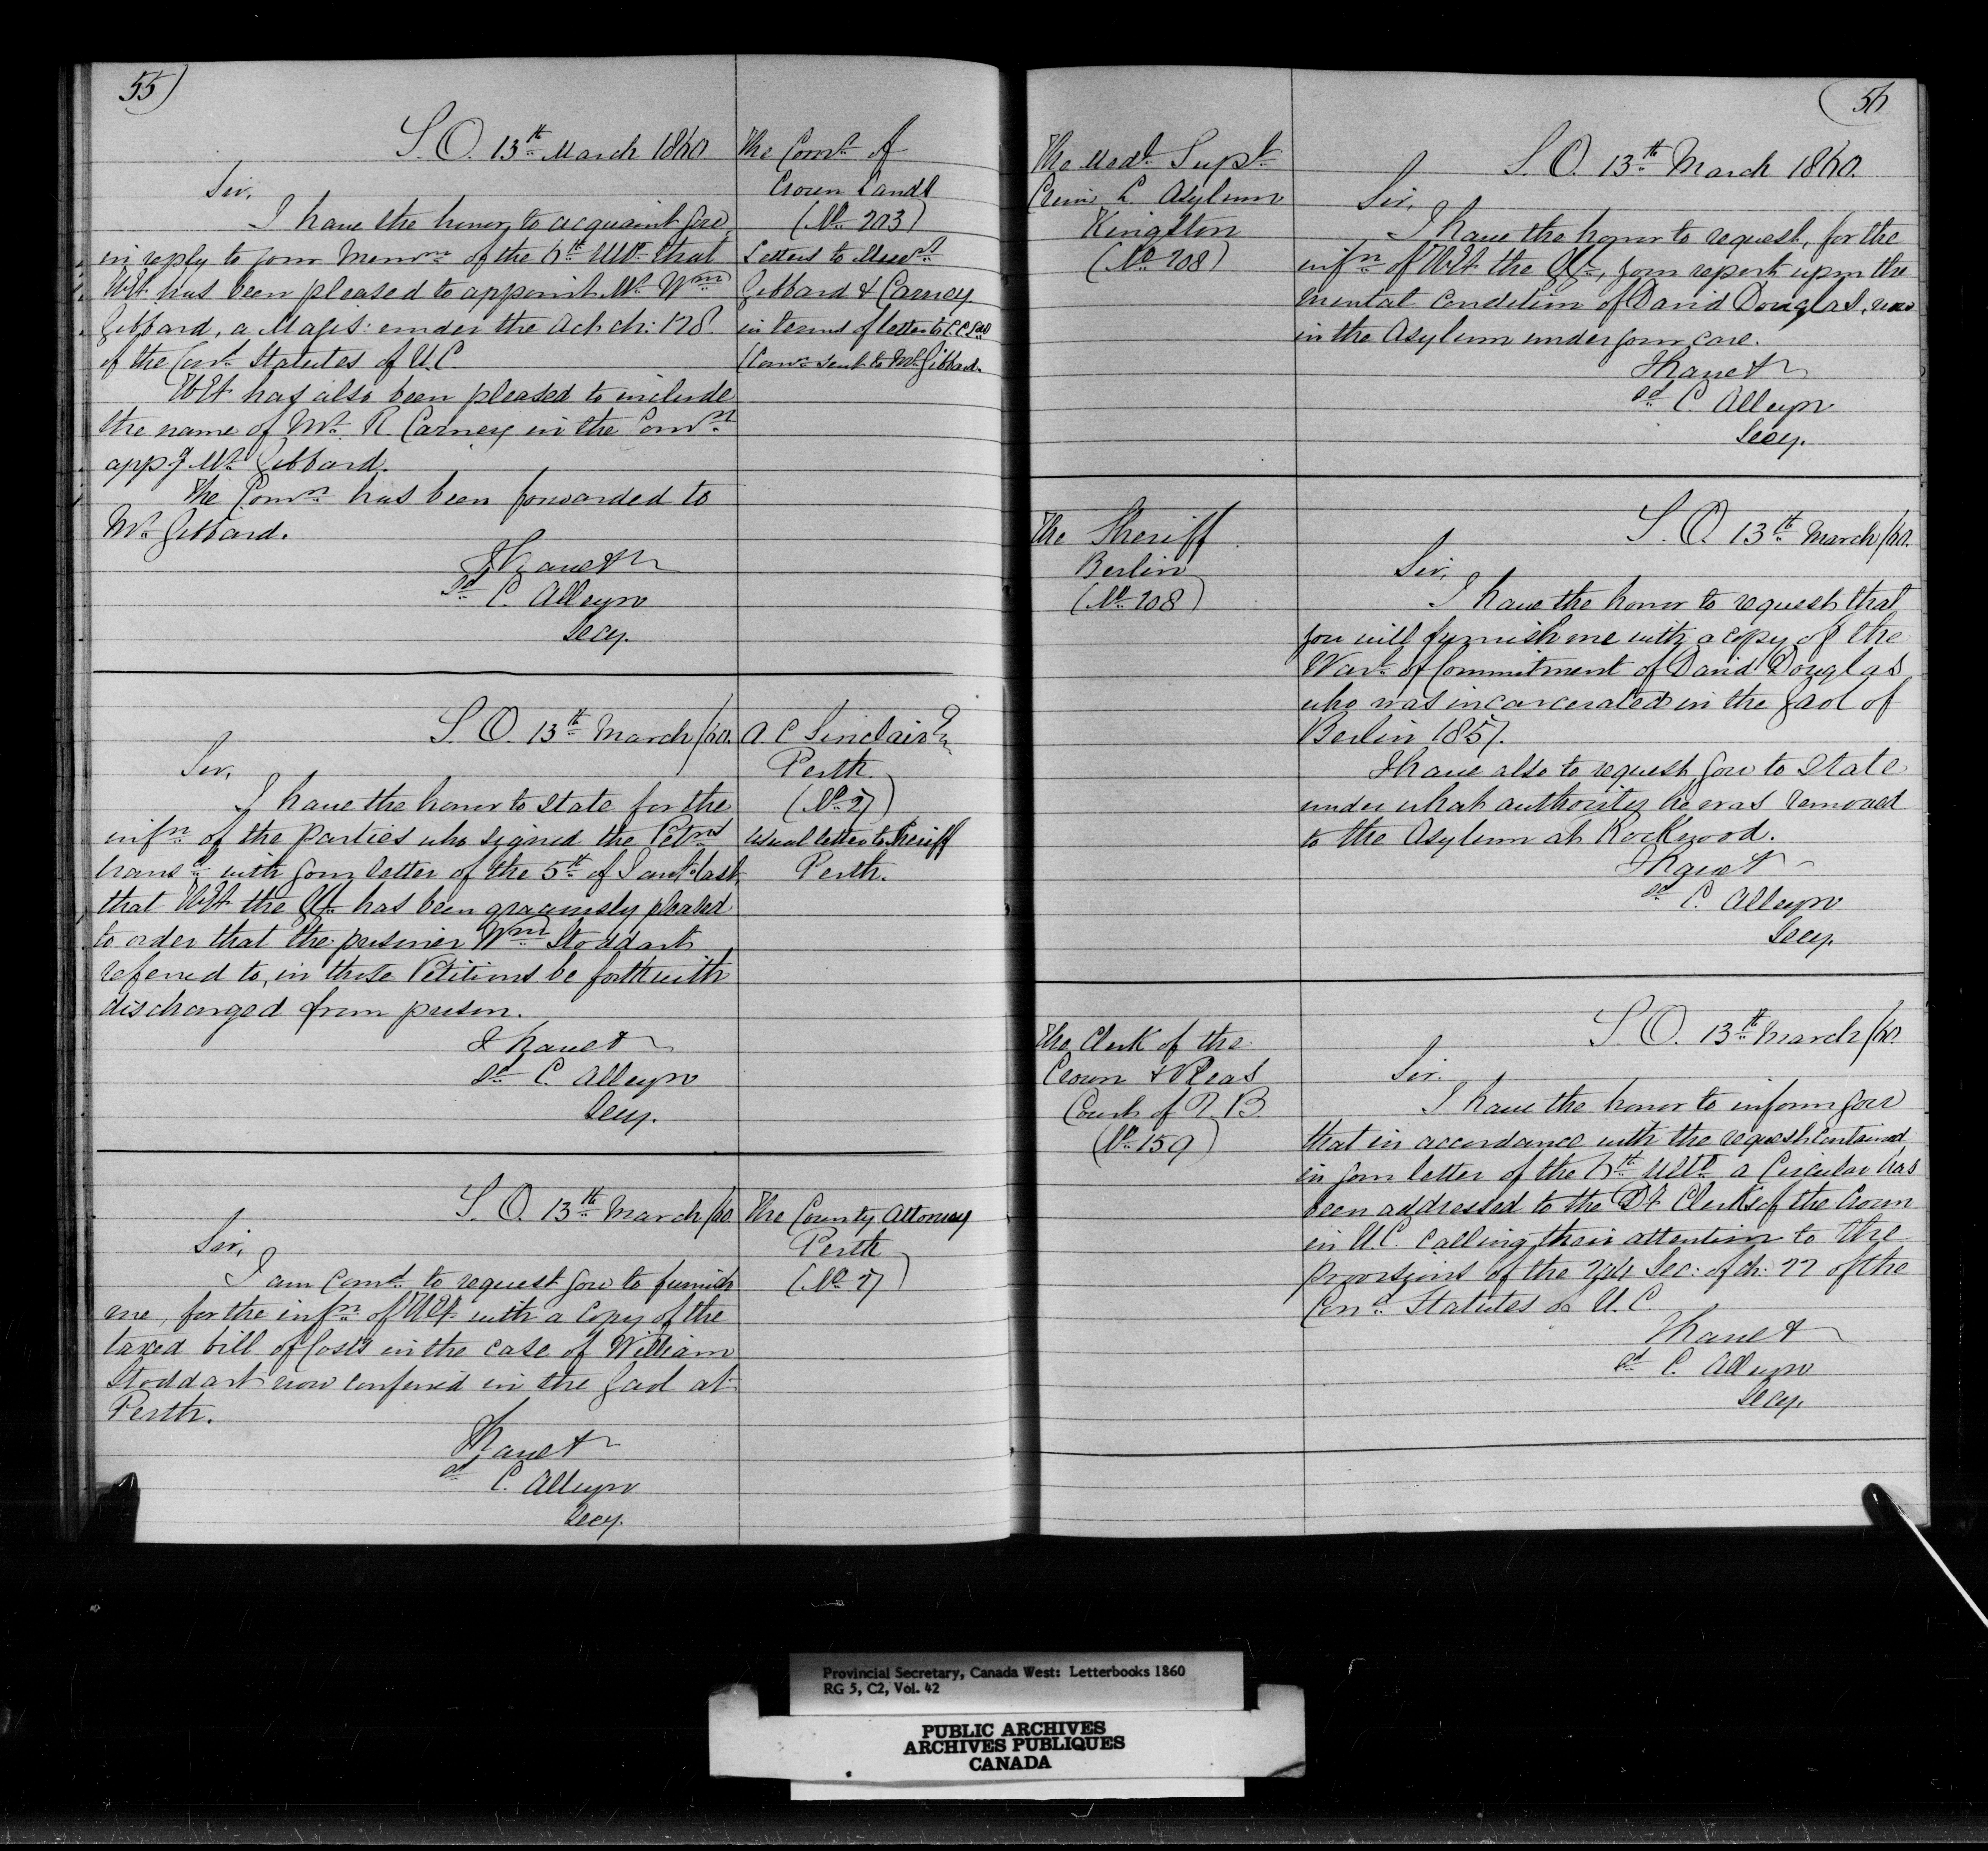 55)
S.O. 13th March 1860
Sir,
I have the honor to acquaint you
in reply to your Memom of the 6th Ulto that
H.E. has been pleased to appoint Mr Wm
Gibbard, a Magis: under the Act ch: 128
of the Cond Statutes of U.C.
H.E. has also been pleased to include
the name of Mr R. Carney in the Comn
appg Mr Gibbard.
The Comn has been forwarded to
Mr Gibbard.
I have &
sd C. Alleyn
Secy.
The Comr of
Crown Lands
(No 203)
Letters to Messrs
Gibbard & Carney
in terms of letter to C C Lds
(Comn sent to Mr Gibbard.
S.O. 13th March/60.
Sir,
I have the honor to state for the
infn of the parties who signed the Petns
transd with your letter of the 5th of Jany last,
that H.E. the G.G. has been graciously pleased
to order that the prisoner Wm Stoddart
referred to, in those Petitions be forthwith
discharged from prison.
I have &
sd C. Alleyn
Secy.
A. C Sinclair Esq
Perth.
(No 27)
Usual letter to Sheriff
Perth.
S.O. 13th March/60
Sir,
I am comd to request you to furnish
me, for the infn of H.E. with a copy of the
taxed bill of Costs in the case of William
Stoddart now confined in the Gaol at
Perth.
I have &
sd C. Alleyn
Secy.
The County Attorney
Perth
(No 27)
(56
The Medl Supt
Crim L. Asylum
Kingston
(No 208)
S.O. 13th March 1860.
Sir,
I have the honor to request, for the
infn of H.E. the G.G., your report upon the
mental condition of David Douglas, now
in the Asylum under your care.
I have &
sd C. Alleyn
Secy.
The Sheriff
Berlin
(No 208)
S.O. 13th March/60.
Sir,
I have the honor to request that
you will furnish me with a copy of the
Wart of Commitment of David Douglas
who was incarcerated in the Gaol of
Berlin 1857.
I have also to request you to state
under what authority he was removed
to the Asylum at Rockwood.
I have &
sd C. Alleyn
Secy.
The Clerk of the
Crown & Pleas
Court of Q.B
(No 159)
S.O. 13th March/60.
Sir.
I have the honor to inform you
that in accordance with the request contained
in your letter of the 6th Ulto a Circular has
been addressed to the Dy Clerks of the Crown
in U.C. calling their attention to the
provisions of the 244 Sec: of ch: 22 of the
Cond Statutes of U.C.
I have &
sd C. Alleyn
Secy.
Provincial Secretary, Canada West: Letterbooks 1860
RG 5, C2, Vol. 42
PUBLIC ARCHIVES
ARCHIVES PUBLIQUES
CANADA